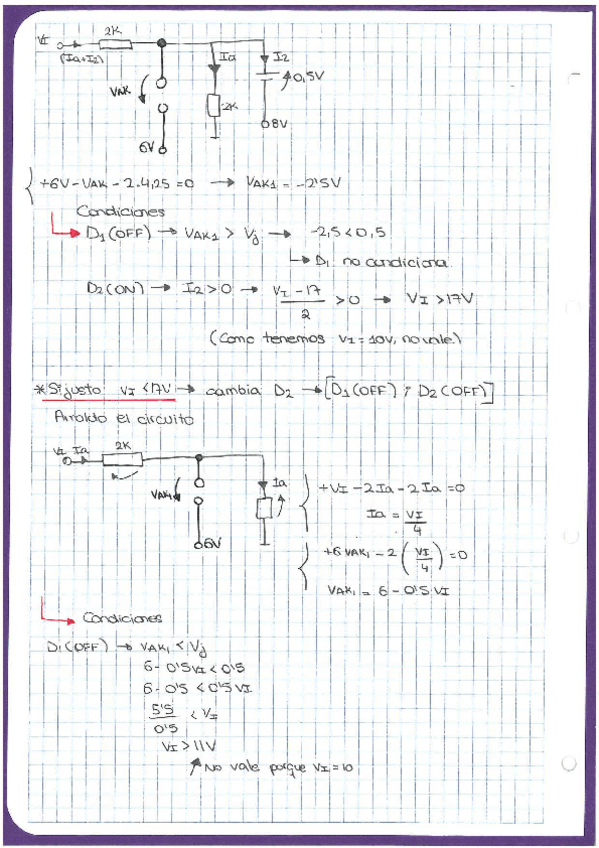 VI 2K
(Ia+I2) Ia I2
VAK 0,5V
2K
8V
6V
+6V-VAK-2.4,25=0 → VAK1=-2'5V
Condiciones
D1(OFF) → VAK1 > Vj → -2,5<0,5
↳ D1 no condiciona
D2(ON) → I2>0 → VI-17/2 >0 → VI>17V
(Como tenemos VI=10V, no vale)
*Si justo VI<17V → cambia D2 → [D1(OFF) ; D2(OFF)]
el circuito
VI Ia 2K
VAK1 Ia
6V
+VI-2Ia-2Ia=0
Ia = VI/4
+6 VAK1-2(VI/4)=0
VAK1 = 6-0'5VI
Condiciones
D1(OFF) → VAK1 < Vj
6-0'5VI<0'5
6-0'5<0'5VI
5'5/0'5 < VI
VI>11V
No vale porque VI=10